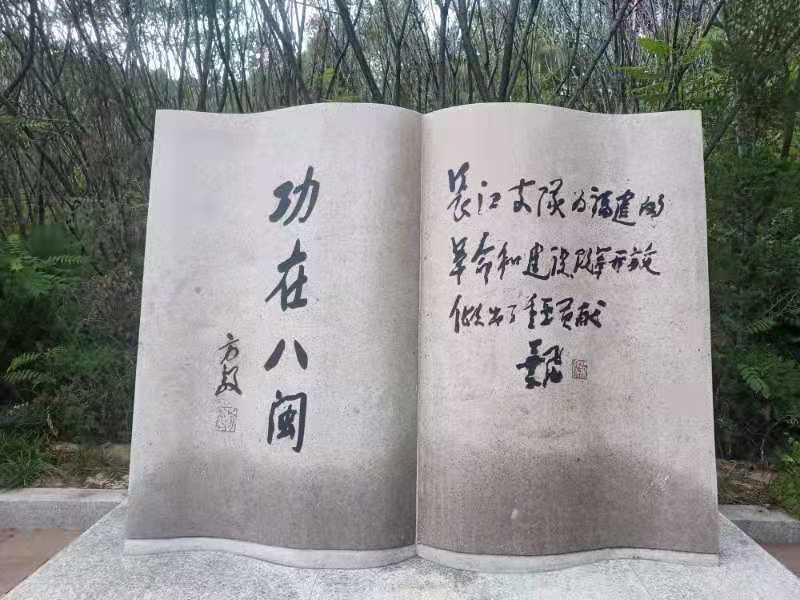 功在八闽
方毅
長江支隊为福建的
革命和建设改革开放
做出了重要贡献